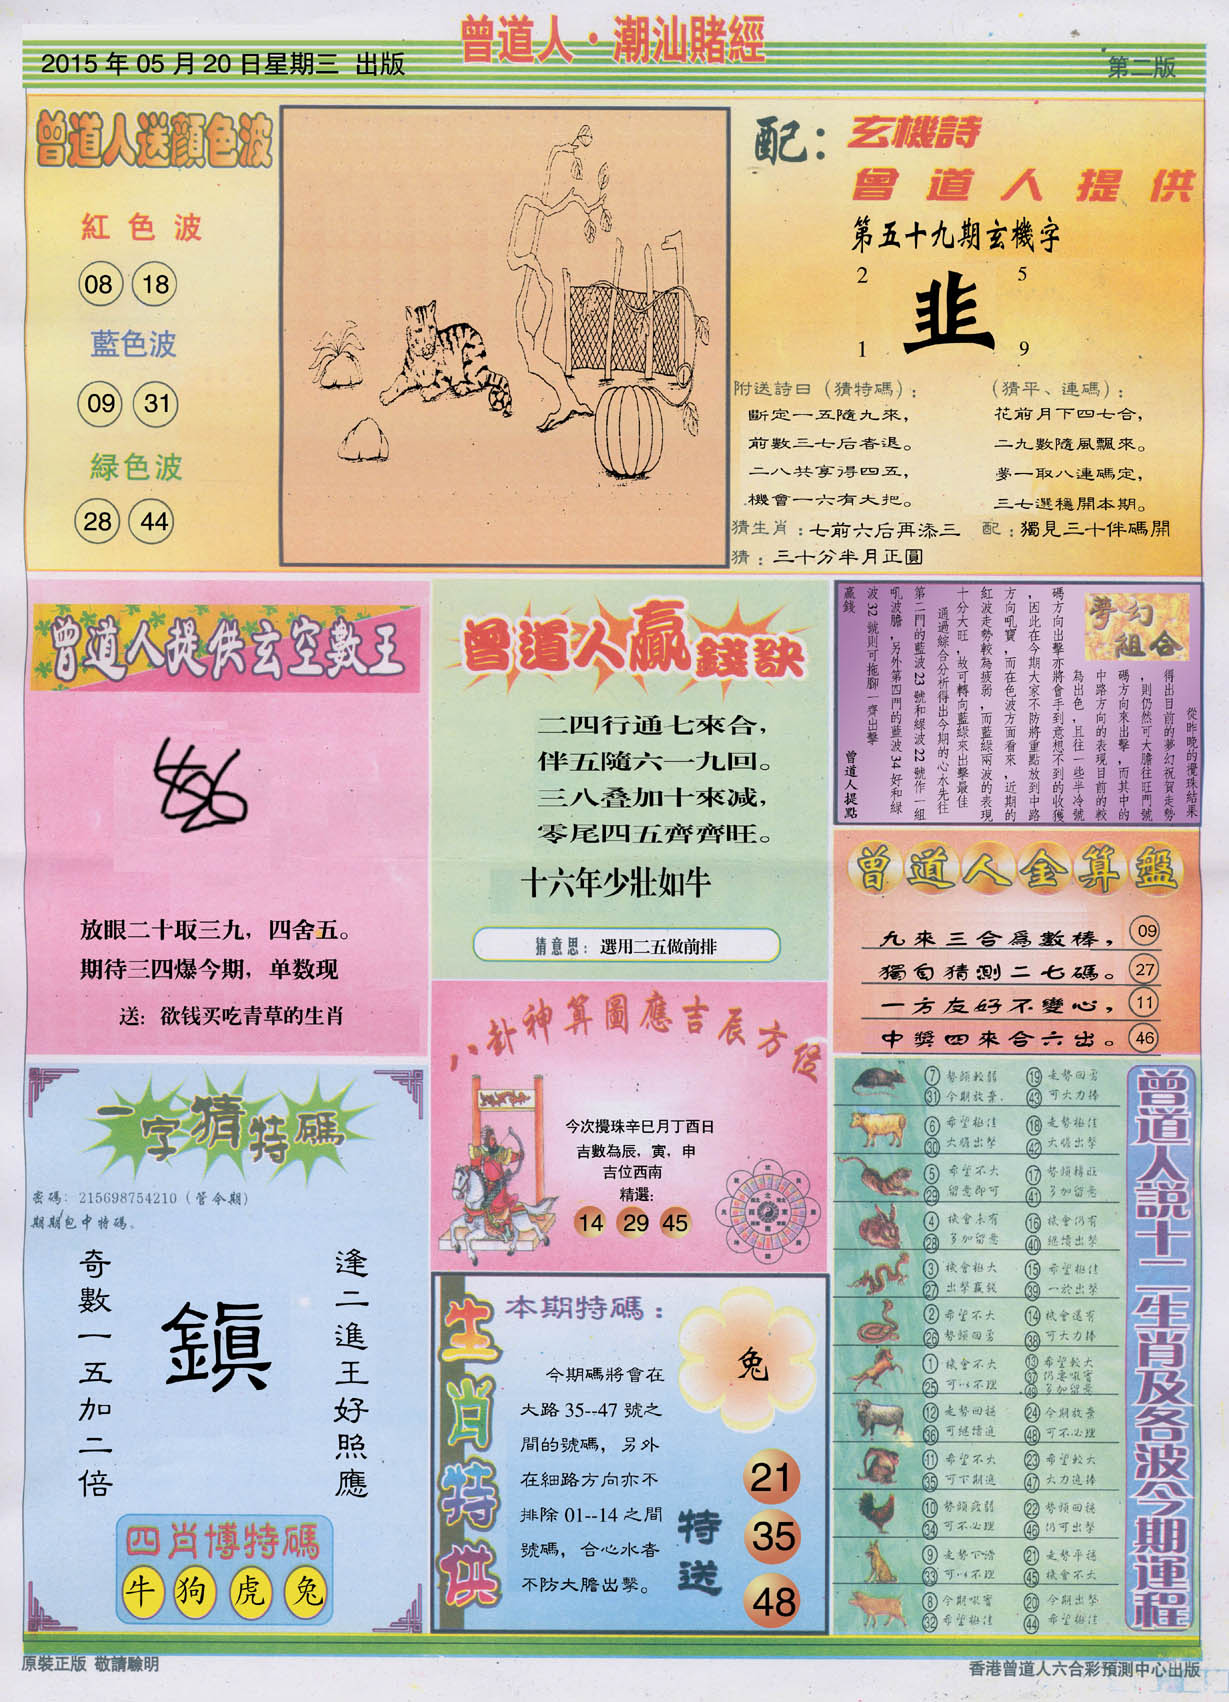 曾道人·潮汕賭經
2015 年 05 月 20 日星期三 出版
第二版
曾道人送顏色波
紅色波
08 18
藍色波
09 31
緑色波
28 44
配：玄機詩
曾道人提供
第五十九期玄機字
2 5
韭
1 9
附送詩曰（猜特碼）：
斷定一五隨九來，
前數三七后者退。
二八共享得四五，
機會一六有大把。
（猜平、連碼）：
花前月下四七合，
二九數隨風飄來。
夢一取八連碼定，
三七選穩開本期。
猜生肖：七前六后再添三
配：獨見三十伴碼開
猜：三十分半月正圓
曾道人提供玄空數王
放眼二十取三九，四舍五。
期待三四爆今期，单数现
送：欲钱买吃青草的生肖
曾道人贏錢訣
二四行通七來合，
伴五隨六一九回。
三八叠加十來减，
零尾四五齊齊旺。
十六年少壯如牛
猜意思：選用二五做前排
夢幻組合
從昨晚的攪珠結果
得出目前的夢幻祝賀走勢
，則仍然可大膽往旺門號
碼方向來出擊，而其中的
中路方向的表現目前的較
為出色，且往一些半冷號
碼方向出擊亦將會手到意想不到的收獲
，因此在今期大家不防將重點放到中路
方向吼寶，而在色波方面看來，近期的
紅波走勢較為疲弱，而藍綠兩波的表現
十分大旺，故可轉向藍綠來出擊最佳
通過綜合分析得出今期的心水先往
第二門的藍波 23 號和綠波 22 號作一組
吼波膽，另外第四門的藍波 34 好和綠
波 32 號則可拖腳一齊出擊
贏錢
曾道人提點
曾道人金算盤
九來三合爲數棒， 09
獨自猜測二七碼。 27
一方友好不變心， 11
中獎四來合六出。 46
八卦神算圖應吉辰方位
今次攪珠辛巳月丁酉日
吉數為辰，寅，申
吉位西南
精選：
14 29 45
一字猜特碼
密碼：215698754210（管令期）
期期包中特碼。
奇數一五加二倍
鎭
逢二進王好照應
四肖博特碼
牛 狗 虎 兔
生肖特供
本期特碼：
兔
今期碼將會在
大路 35--47 號之
間的號碼，另外
在細路方向亦不
排除 01--14 之間
號碼，合心水者
不防大膽出擊。
特送
21
35
48
曾道人説十二生肖及各波今期運程
7 勢頭較弱 19 走勢回勇
31 今期放棄 43 可大力捧
6 希望極佳 18 走勢極佳
30 大膽出擊 42 大膽出擊
5 希望不大 17 勢頭轉旺
29 留意即可 41 多加留意
4 機會未有 16 機會仍有
28 多加留意 40 繼續出擊
3 機會極大 15 希望極佳
27 出擊贏錢 39 一於出擊
2 希望不大 14 機會還有
26 勢頭回勇 38 可大力捧
1 機會不大 13 希望較大
25 可以不理 37 仍要吸寶
49 多加留意
12 走勢回穩 24 今期放棄
36 可繼續追 48 可不必理
11 希望不大 23 希望較大
35 可下期追 47 大力追捧
10 勢頭疲弱 22 勢頭回穩
34 可不必理 46 仍可出擊
9 走勢下滑 21 走勢平穩
33 可以不理 45 機會不大
8 今期吸寶 20 今期出擊
32 希望極佳 44 希望極佳
原裝正版 敬請驗明
香港曾道人六合彩預測中心出版